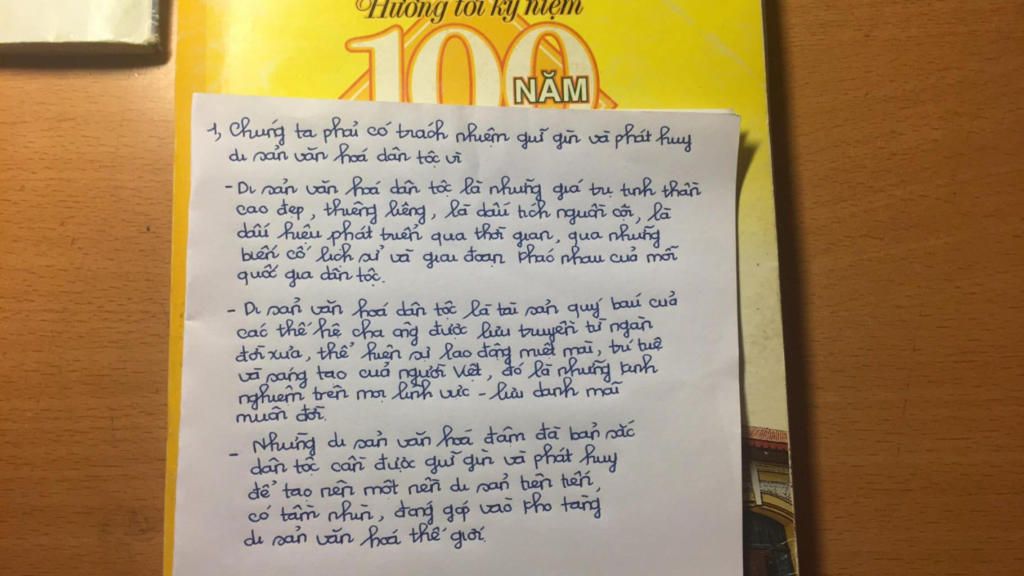 Hướng tới kỷ niệm
100
NĂM
1, Chúng ta phải có trách nhiệm giữ gìn và phát huy
di sản văn hoá dân tộc vì
- Di sản văn hoá dân tộc là những giá trị tinh thần
cao đẹp, thiêng liêng, là dấu tích người cội, là
dấu hiệu phát triển qua thời gian, qua những
biến cố lịch sử và giai đoạn khác nhau của mỗi
quốc gia dân tộc.
- Di sản văn hoá dân tộc là tài sản quý báu của
các thế hệ cha ông được lưu truyền từ ngàn
đời xưa, thể hiện sự lao động miệt mài, trí tuệ
và sáng tạo của người Việt, đó là những kinh
nghiệm trên mọi lĩnh vực - lưu danh mãi
muôn đời.
- Những di sản văn hoá đậm đà bản sắc
dân tộc cần được giữ gìn và phát huy
để tạo nên một nền di sản tiên tiến,
có tầm nhìn, đóng góp vào kho tàng
di sản văn hoá thế giới.